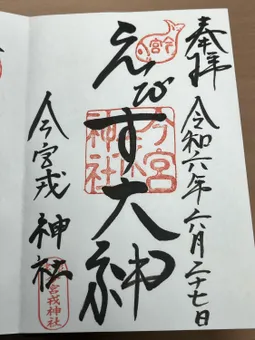 奉拝
令和六年六月二十七日
今宮
えびす大神
今宮
神社
今宮戎神社
宮戎神社